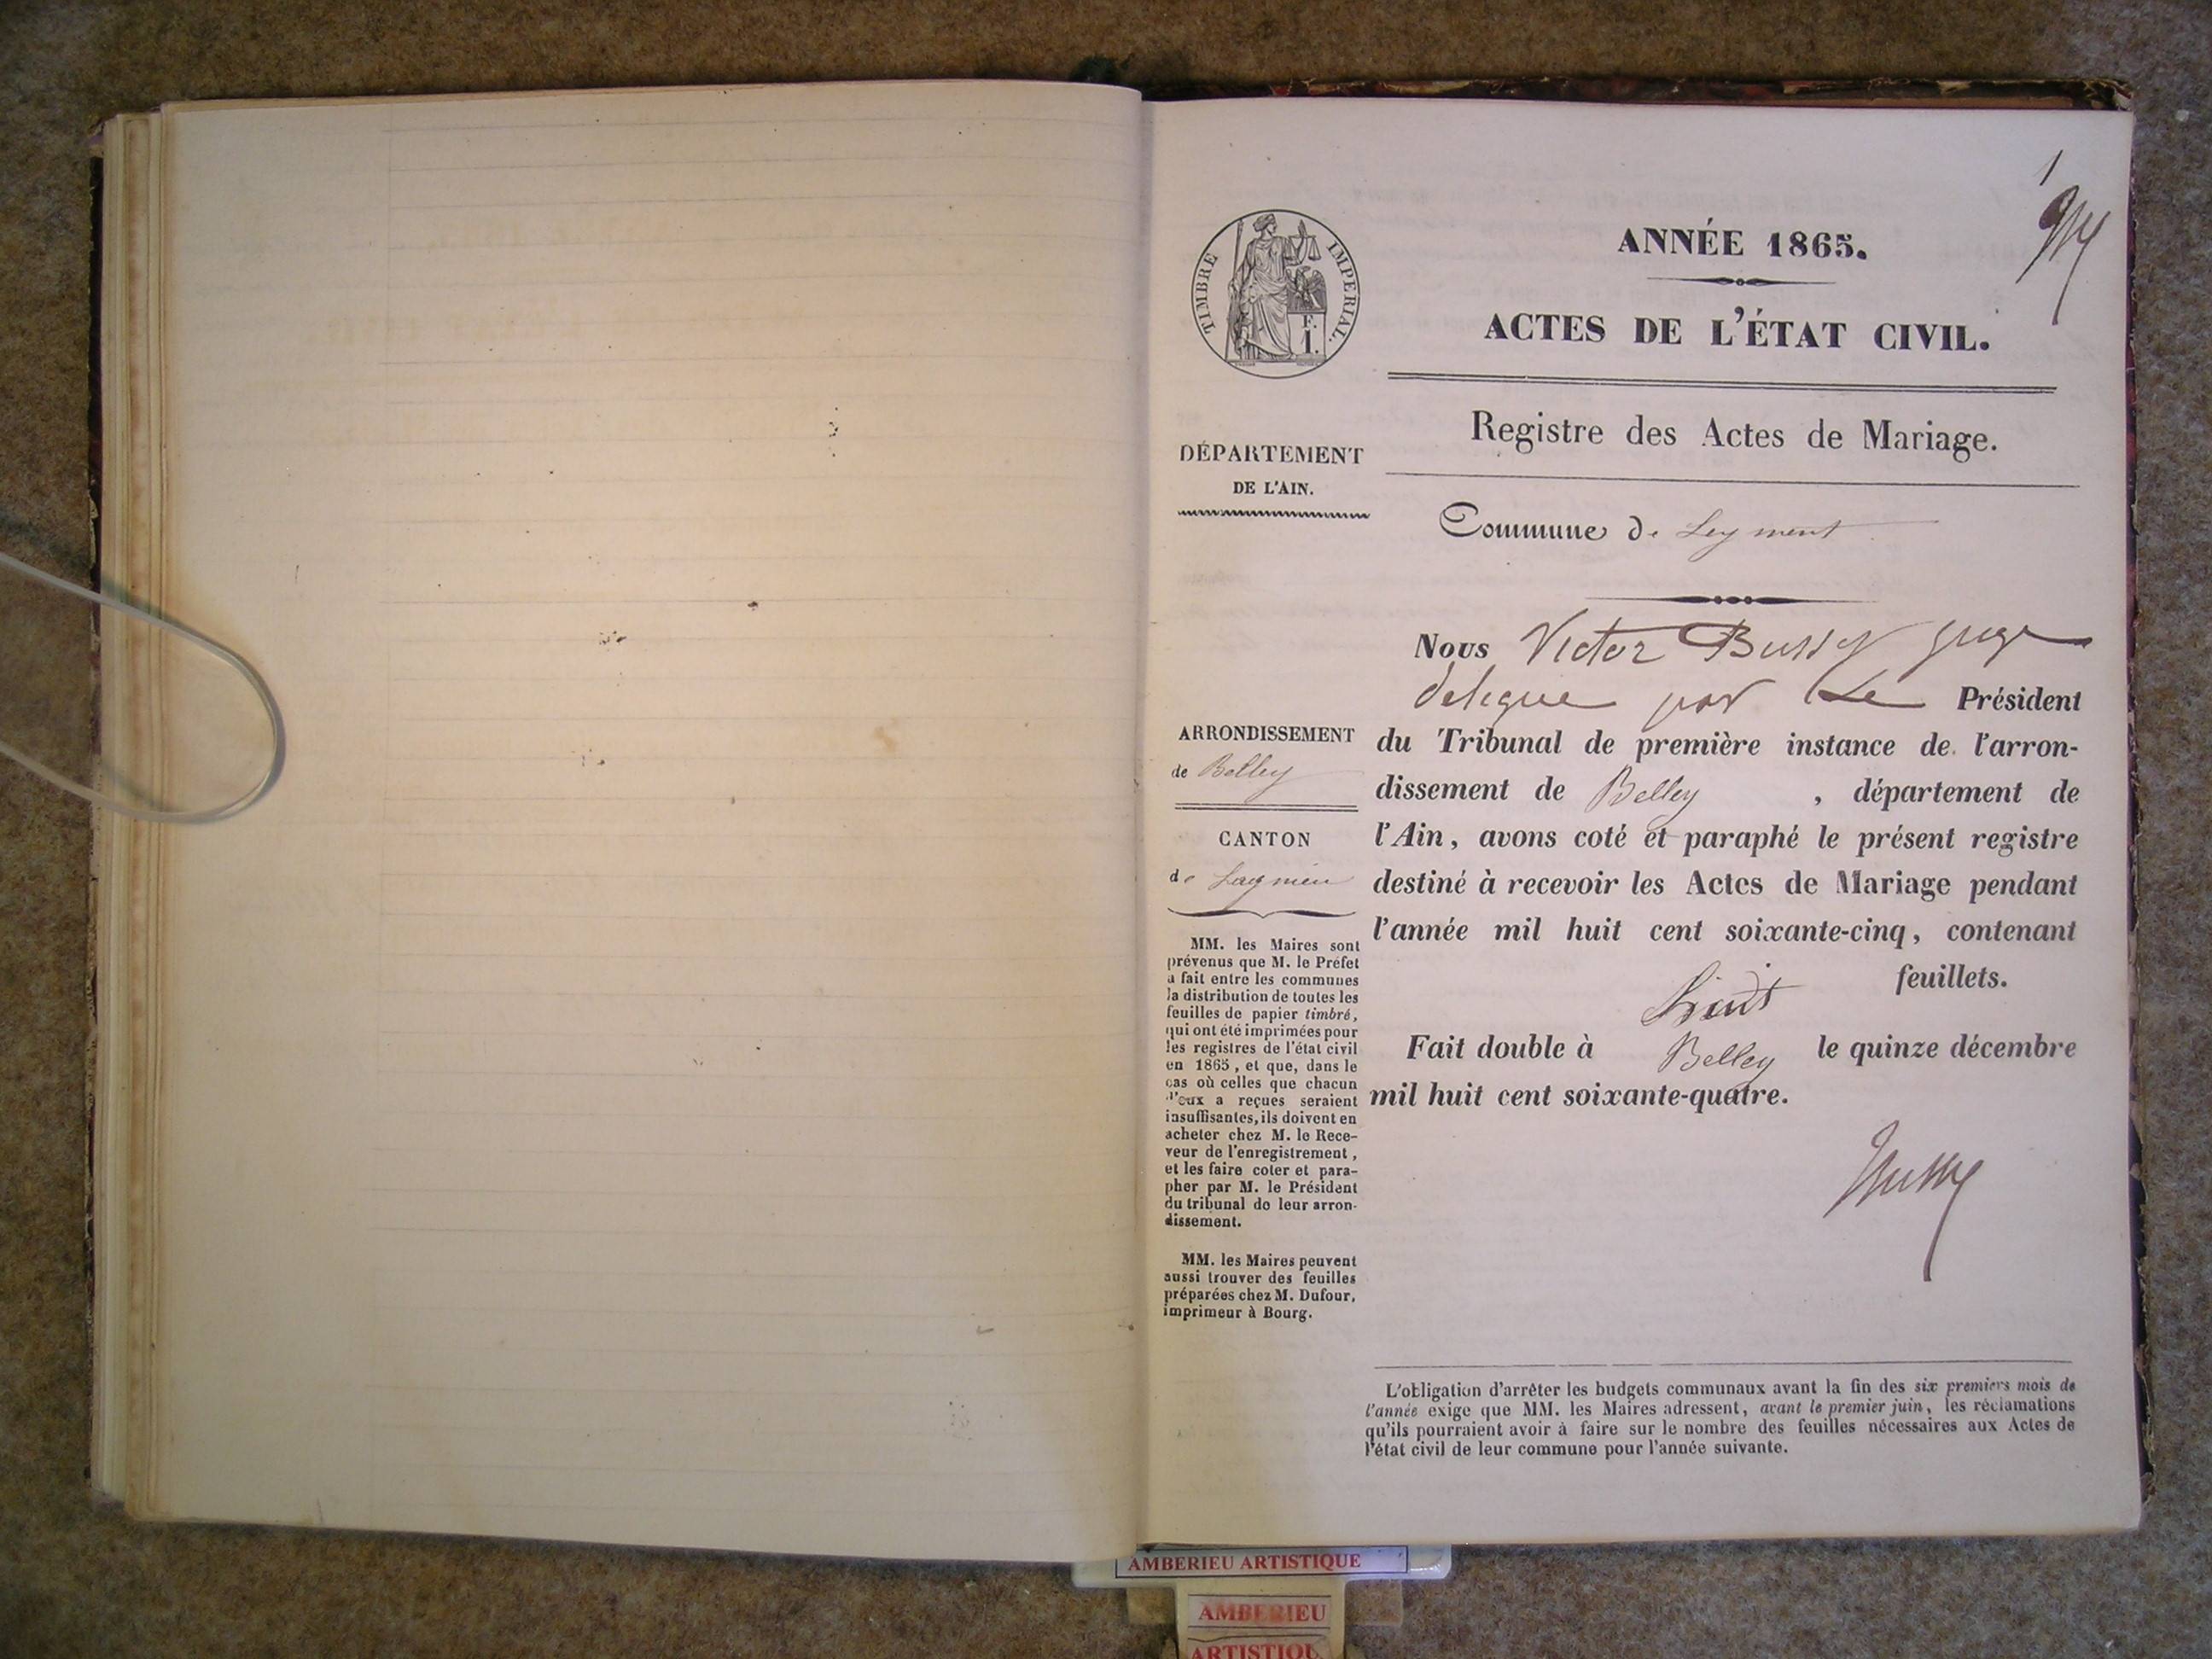 1
ANNÉE 1865.
ACTES DE L'ÉTAT CIVIL.
TIMBRE IMPERIAL.
F.
1.
Registre des Actes de Mariage.
DÉPARTEMENT
DE L'AIN.
Commune de Leyment
Nous Victor juge
delegue par Le Président
du Tribunal de première instance de l'arron-
dissement de Belley , département de
l'Ain, avons coté et paraphé le présent registre
destiné à recevoir les Actes de Mariage pendant
l'année mil huit cent soixante-cinq, contenant
feuillets.
Fait double à Belley le quinze décembre
mil huit cent soixante-quatre.
ARRONDISSEMENT
de Belley
CANTON
de Lagnieu
MM. les Maires sont
prévenus que M. le Préfet
a fait entre les communes
la distribution de toutes les
feuilles de papier timbré,
qui ont été imprimées pour
les registres de l'état civil
en 1865, et que, dans le
cas où celles que chacun
d'eux a reçues seraient
insuffisantes, ils doivent en
acheter chez M. le Rece-
veur de l'enregistrement,
et les faire coter et para-
pher par M. le Président
du tribunal de leur arron-
dissement.
MM. les Maires peuvent
aussi trouver des feuilles
préparées chez M. Dufour,
imprimeur à Bourg.
L'obligation d'arrêter les budgets communaux avant la fin des six premiers mois de
l'année exige que MM. les Maires adressent, avant le premier juin, les réclamations
qu'ils pourraient avoir à faire sur le nombre des feuilles nécessaires aux Actes de
l'état civil de leur commune pour l'année suivante.
AMBERIEU ARTISTIQUE
AMBERIEU
ARTISTIQU